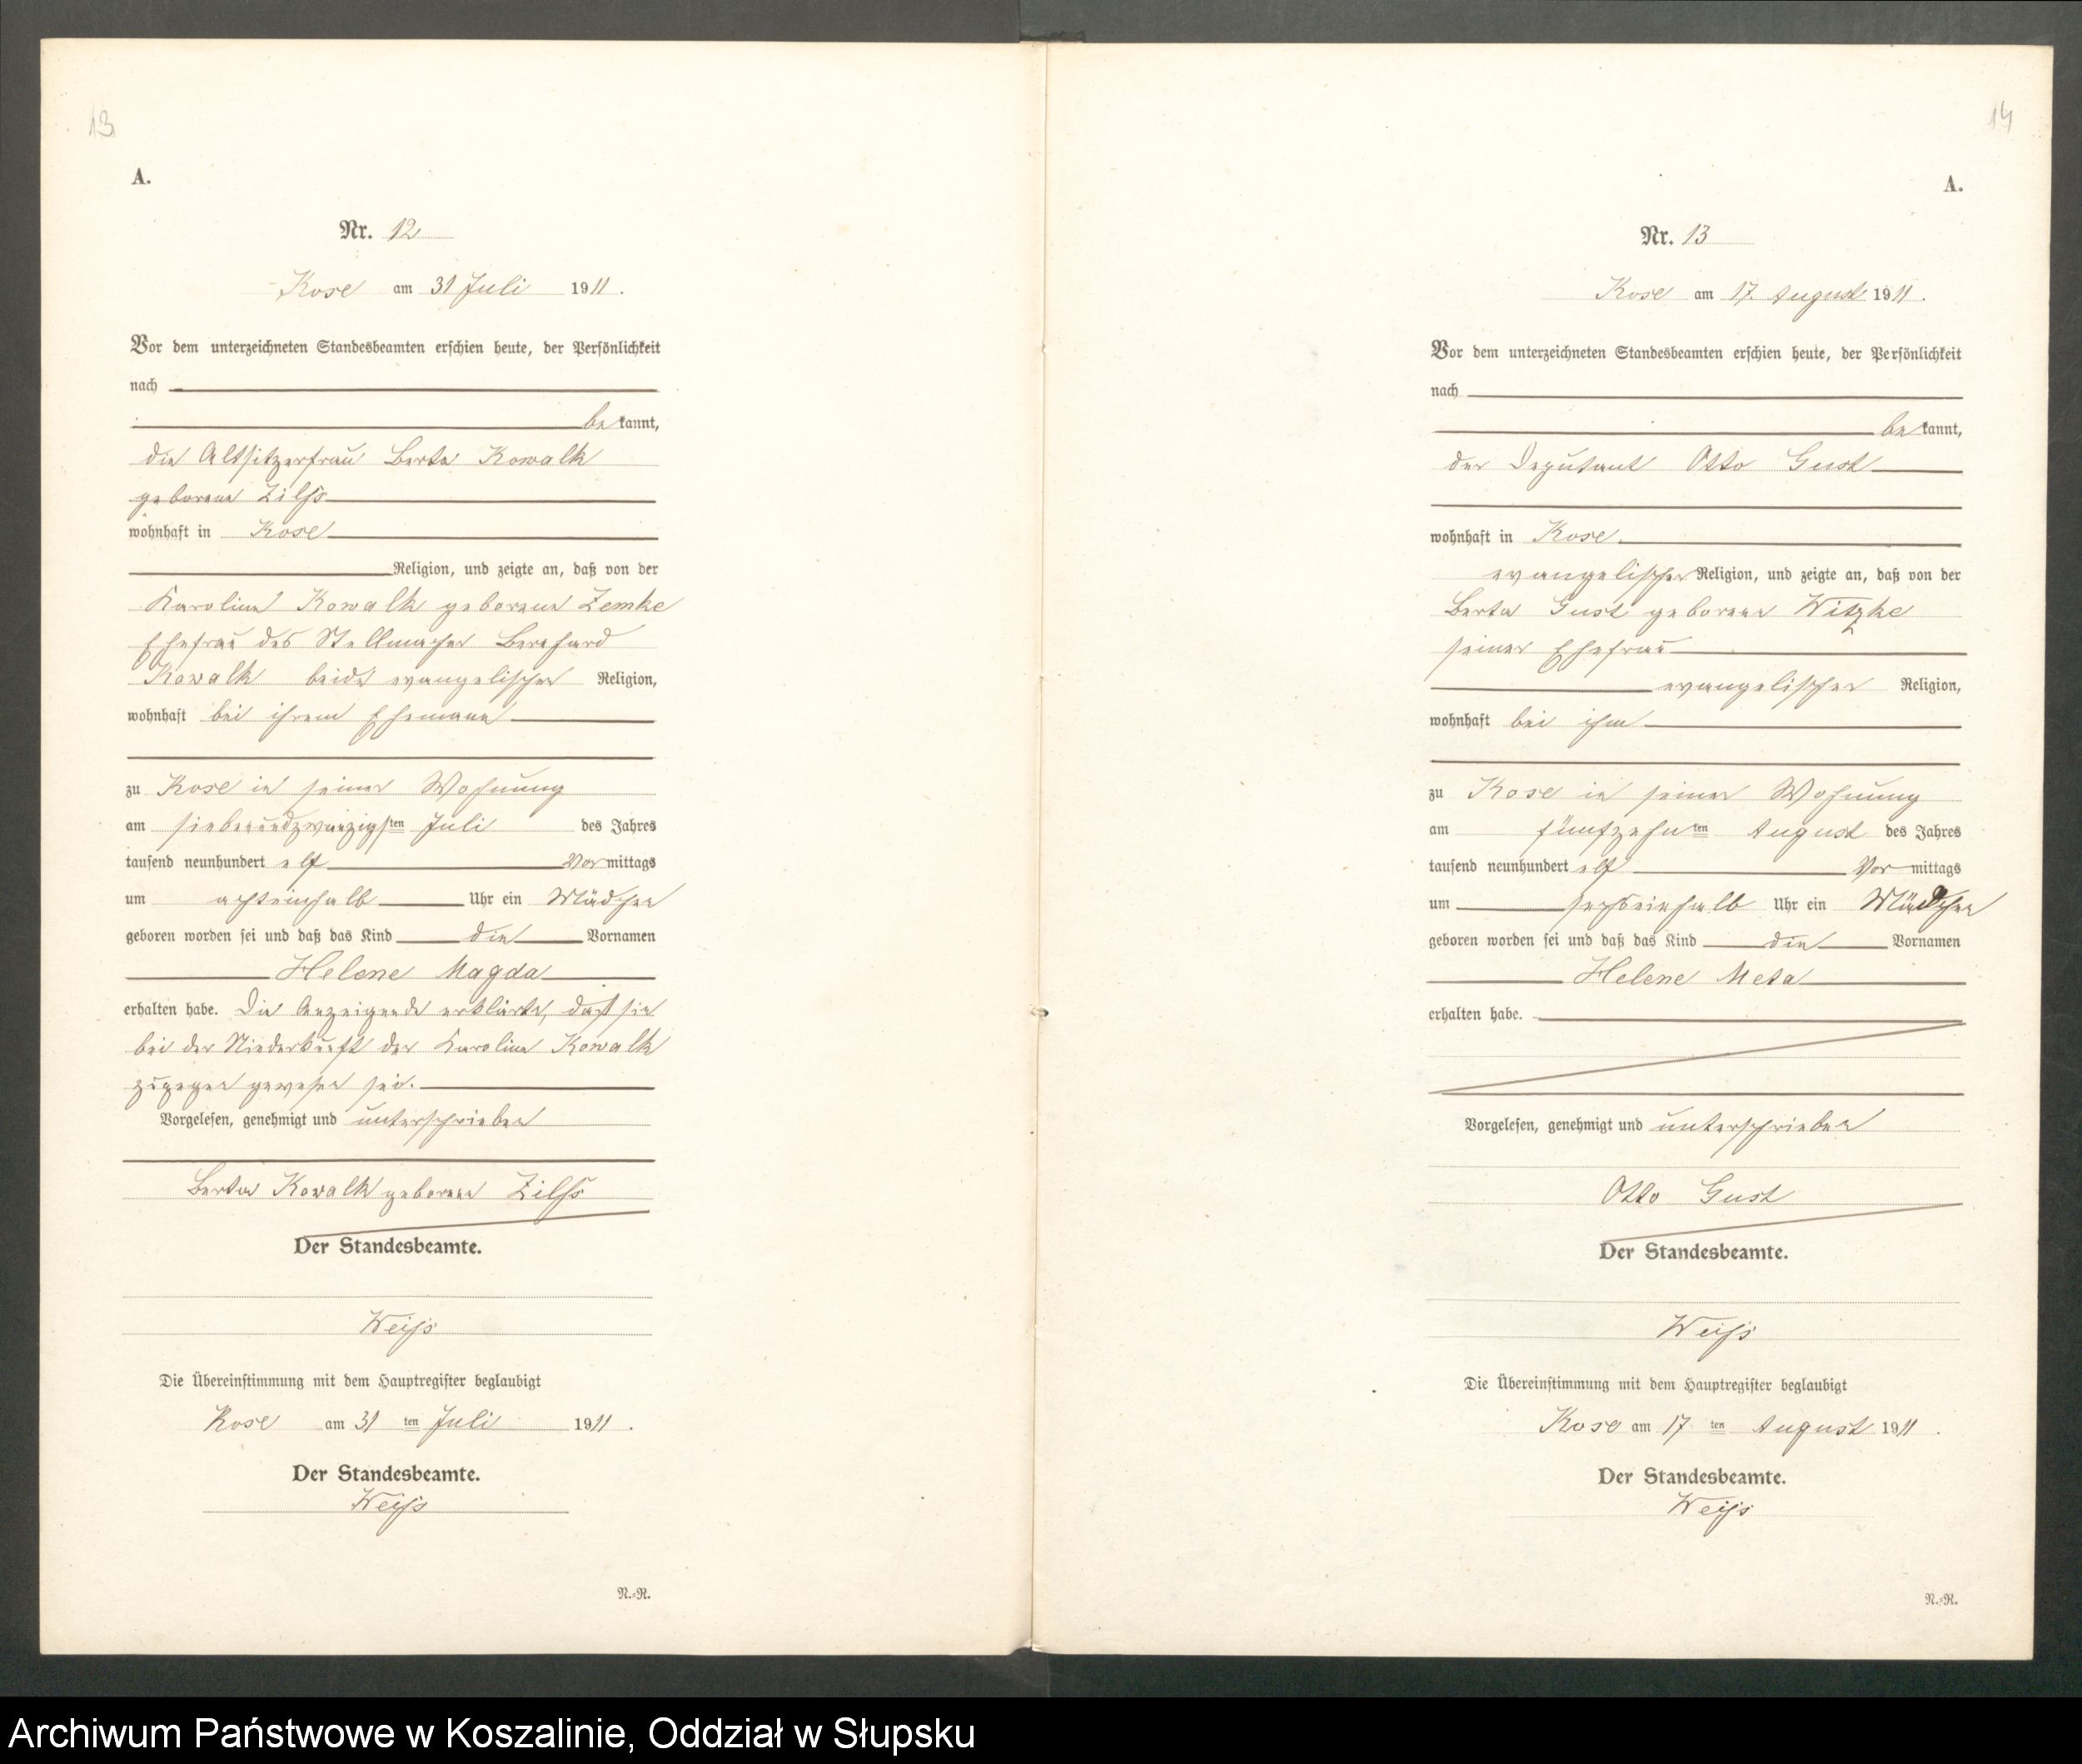 13
A.
Nr. 12
Kose am 31 Juli 1911.
Vor dem unterzeichneten Standesbeamten erschien heute, der Persönlichkeit
nach
bekannt,
die Altsitzerfrau Berta Kowalk
geborene Zilß
wohnhaft in Kose
Religion, und zeigte an, daß von der
Karoline Kowalk geborene Zemke
Ehefrau des Stellmacher Bernhard
Kowalk beide evangelischer Religion,
wohnhaft bei ihrem Ehemann
zu Kose in seiner Wohnung
am siebenundzwanzigsten Juli des Jahres
tausend neunhundert elf Vormittags
um achteinhalb Uhr ein Mädchen
geboren worden sei und daß das Kind die Vornamen
Helene Magda
erhalten habe. Die Anzeigende erklärte, daß sie
bei der Niederkunft der Karoline Kowalk
zugegen gewesen sei.
Vorgelesen, genehmigt und unterschrieben
Berta Kowalk geborene Zilß
Der Standesbeamte.
Weiß
Die Übereinstimmung mit dem Hauptregister beglaubigt
Kose am 31 ten Juli 1911.
Der Standesbeamte.
Weiß
N.=R.
14
A.
Nr. 13
Kose am 17. August 1911.
Vor dem unterzeichneten Standesbeamten erschien heute, der Persönlichkeit
nach
bekannt,
der Deputant Otto Gust
wohnhaft in Kose
evangelischer Religion, und zeigte an, daß von der
Berta Gust geborene Witzke
seiner Ehefrau
evangelischer Religion,
wohnhaft bei ihm
zu Kose in seiner Wohnung
am fünfzehnten August des Jahres
tausend neunhundert elf Vormittags
um sechseinhalb Uhr ein Mädchen
geboren worden sei und daß das Kind die Vornamen
Helene Meta
erhalten habe.
Vorgelesen, genehmigt und unterschrieben
Otto Gust
Der Standesbeamte.
Weiß
Die Übereinstimmung mit dem Hauptregister beglaubigt
Kose am 17 ten August 1911.
Der Standesbeamte.
Weiß
N.=R.
Archiwum Państwowe w Koszalinie, Oddział w Słupsku